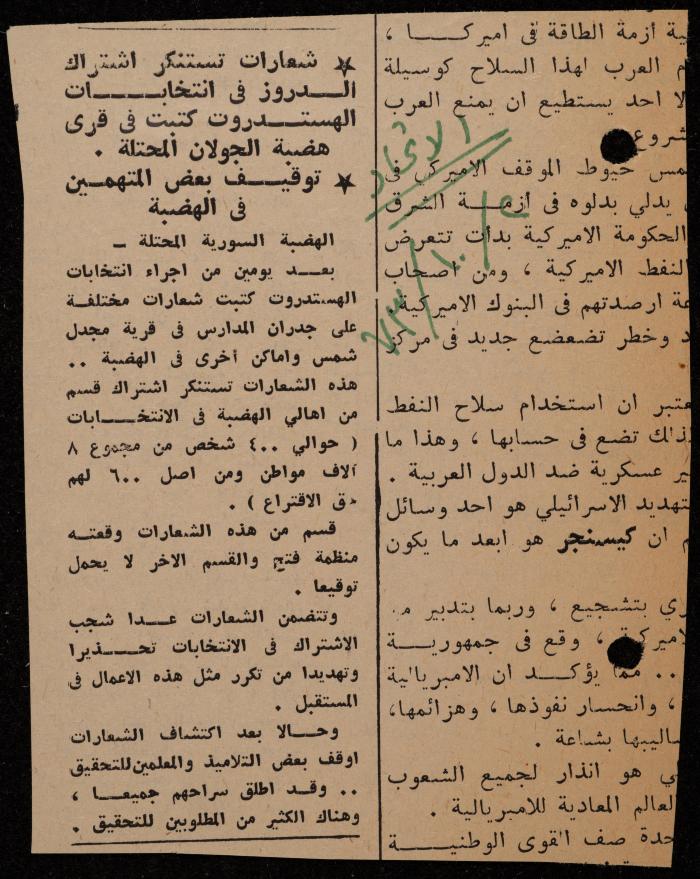 ★ شعارات تستنكر اشتراك
الـدروز فى انتخابـات
الهستدروت كتبت فى قرى
هضبة الجولان المحتلة .
★ توقيـف بعض المتهمـين
فى الهضبة
الهضبة السورية المحتلة ــ
بعـد يومين من اجراء انتخابات
الهستدروت كتبت شعارات مختلفـة
على جدران المدارس فى قرية مجدل
شمس واماكن أخرى فى الهضبة ..
هذه الشعارات تستنكر اشتراك قسم
من اهالي الهضبة فى الانتخـابات
( حوالي ٤٠٠ شخص من مجموع ٨
آلاف مواطن ومن اصل ٦٠٠ لهم
حق الاقتراع ) .
قسم من هذه الشعارات وقعتـه
منظمة فتح والقسم الاخر لا يحمل
توقيعا .
وتتضمن الشعارات عـدا شجب
الاشتراك فى الانتخابات تحـذيرا
وتهديدا من تكرر مثل هذه الاعمال فى
المستقبل .
وحـالا بعد اكتشاف الشعارات
اوقف بعض التلاميذ والمعلمين للتحقيق
.. وقـد اطلق سراحهم جميعـا ،
وهناك الكثير من المطلوبين للتحقيق .
الاتحاد
٧٣/١٠/٢
ية أزمة الطاقة فى اميركـا ،
م العرب لهذا السلاح كوسيلة
لا احد يستطيع ان يمنع العرب
شروع
مس خيوط الموقف الاميركي فى
يدلي بدلوه فى ازمـة الشرق
الحكومة الاميركية بدأت تتعرض
النفط الاميركية ، ومن اصحاب
عة ارصدتهم فى البنوك الاميركية.
د وخطر تضعضع جديد فى مركز
عتبر ان استخدام سلاح النفط
ذلك تضع فى حسابها ، وهذا ما
ير عسكرية ضد الدول العربية .
لتهديد الاسرائيلي هو احد وسائل
م ان كيسنجر هو ابعد ما يكون
ري بتشجيع ، وربما بتدبير
، وقع فى جمهوريـة
.. مما يؤكـد ان الامبريالية
، وانحسار نفوذها ، وهزائمها،
ساليبها بشاعة .
ي هو انذار لجميع الشعوب
لعالم المعادية للامبريالية .
حدة صف القوى الوطنيـة